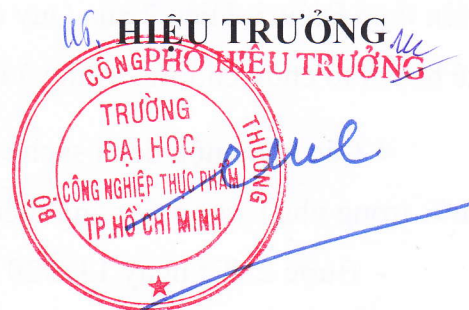 KT. HIỆU TRƯỞNG
PHÓ HIỆU TRƯỞNG
BỘ CÔNG THƯƠNG
TRƯỜNG
ĐẠI HỌC
CÔNG NGHIỆP THỰC PHẨM
TP.HỒ CHÍ MINH